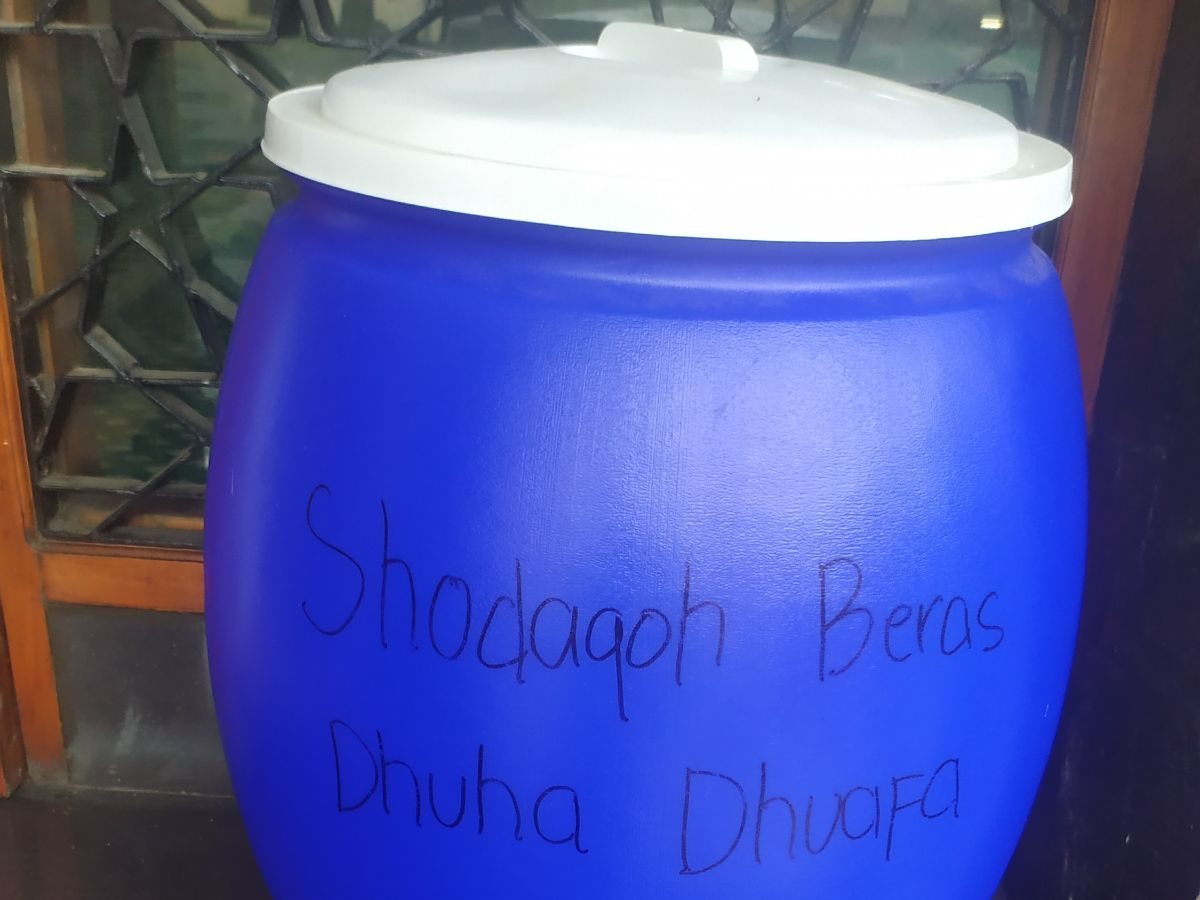 Shodaqoh Beras
Dhuha Dhuafa